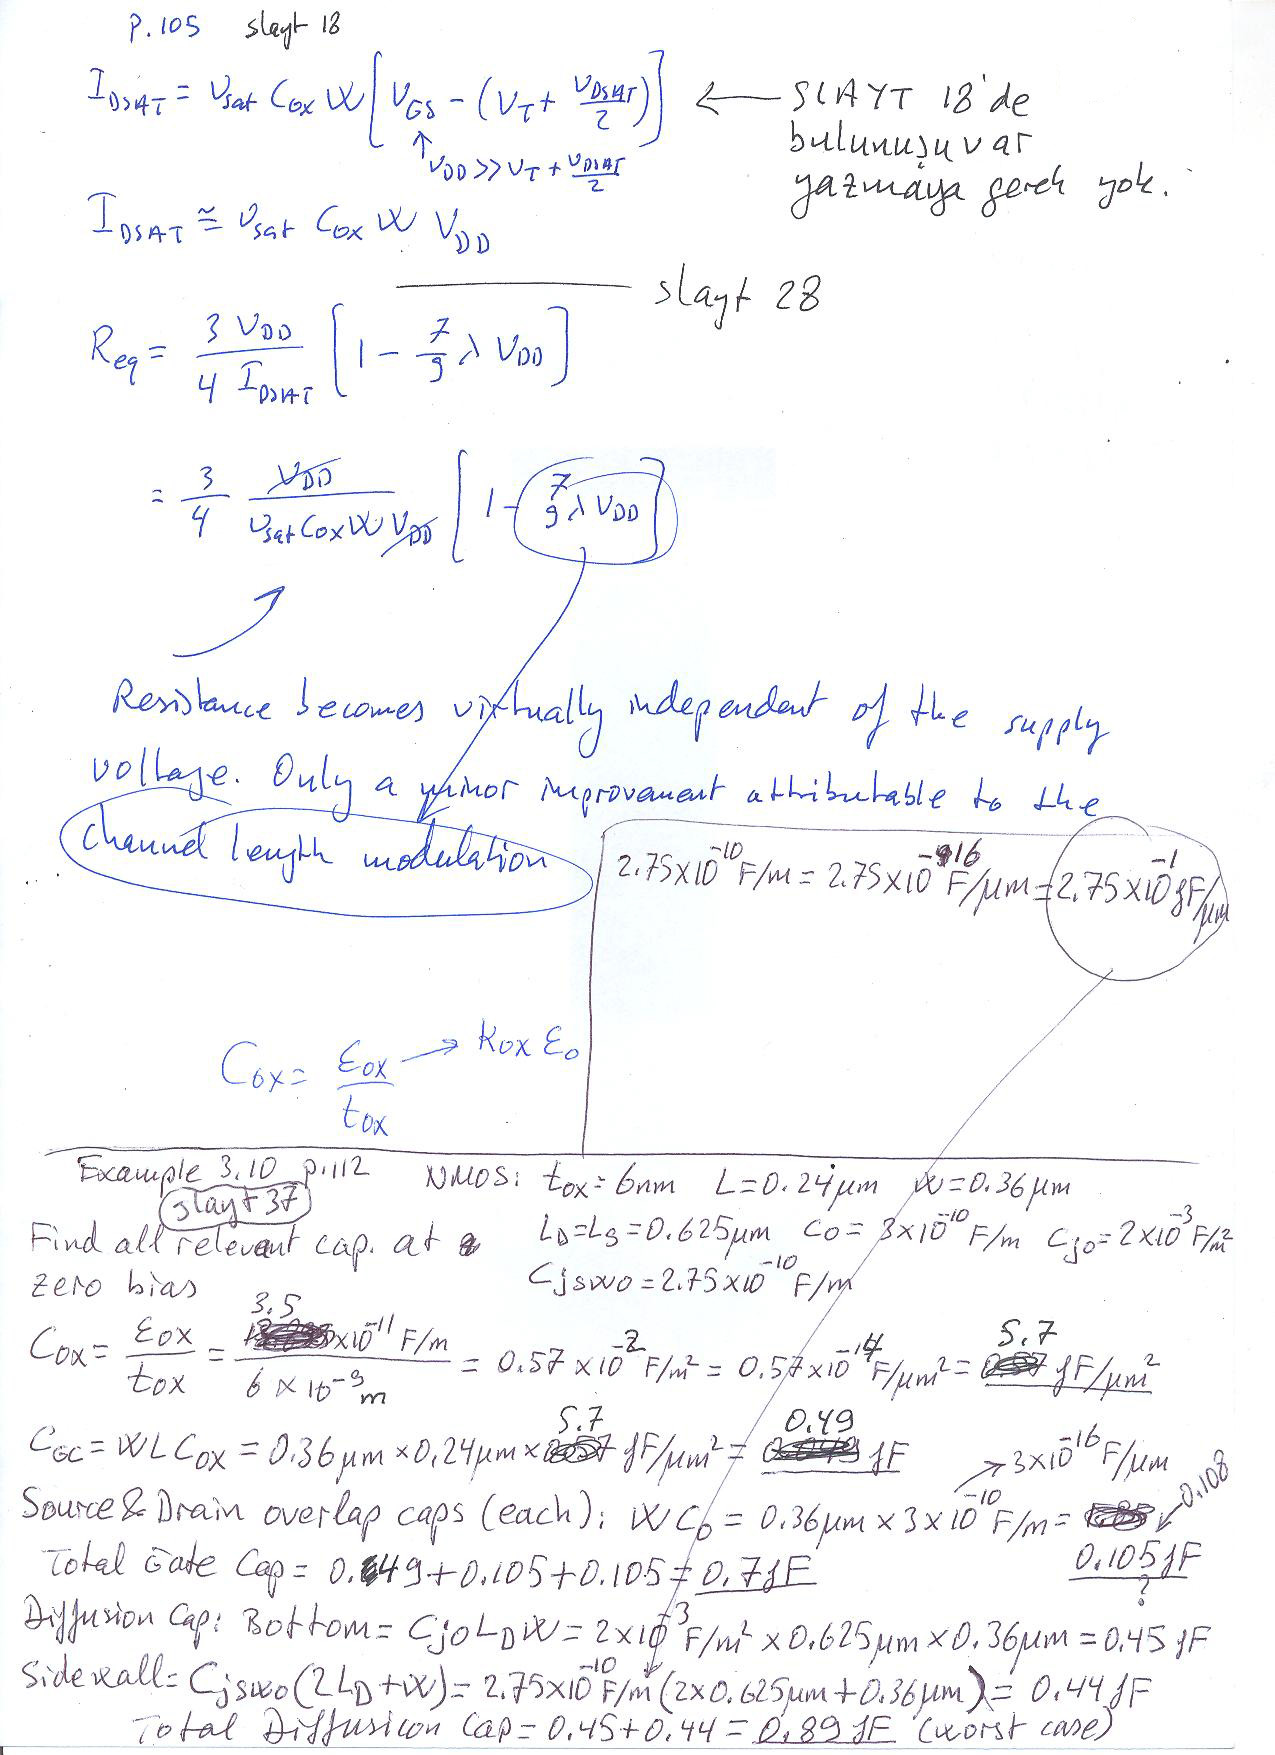 P.105 slayt 18
I_DSAT = υ_sat C_ox W [V_GS − (V_T + V_DSAT/2)] ← SLAYT 18'de
bulunuşu var
yazmaya gerek yok.
↑ V_DD >> V_T + V_DSAT/2
I_DSAT ≅ υ_sat C_ox W V_DD
slayt 28
R_eq = 3 V_DD / 4 I_DSAT [1 − 7/9 λ V_DD]
= 3/4 V_DD / υ_sat C_ox W V_DD [1 − 7/9 λ V_DD]
Resistance becomes virtually independent of the supply
voltage. Only a minor improvement attributable to the
channel length modulation
2.75x10^-10 F/m = 2.75x10^-16 F/μm = 2.75x10^-1 fF/μm
C_ox = ε_ox / t_ox → K_ox ε_o
Example 3.10 p.112 NMOS: t_ox = 6nm L=0.24μm W=0.36μm
slayt 37
Find all relevant cap. at
zero bias
L_D=L_S=0.625μm C_O = 3x10^-10 F/m C_jo=2x10^-3 F/m²
C_jswo = 2.75x10^-10 F/m
C_OX = ε_ox / t_ox = 3.5 x10^-11 F/m / 6 x 10^-9 m = 0.57 x10^-2 F/m² = 0.57x10^-14 F/μm² = 5.7 fF/μm²
C_GC = WLC_OX = 0.36μm x 0.24μm x 5.7 fF/μm² = 0.49 fF
→ 3x10^-16 F/μm
Source & Drain overlap caps (each): W C_O = 0.36μm x 3x10^-10 F/m = 0.108
0.105 fF
?
Total Gate Cap = 0.49+0.105+0.105 = 0.7 fF
Diffusion Cap: Bottom = C_jo L_D W = 2x10^-3 F/m² x 0.625μm x 0.36μm = 0.45 fF
Sidewall = C_jswo (2L_D+W) = 2.75x10^-10 F/m (2x0.625μm+0.36μm) = 0.44 fF
Total Diffusion Cap = 0.45+0.44 = 0.89 fF (worst case)